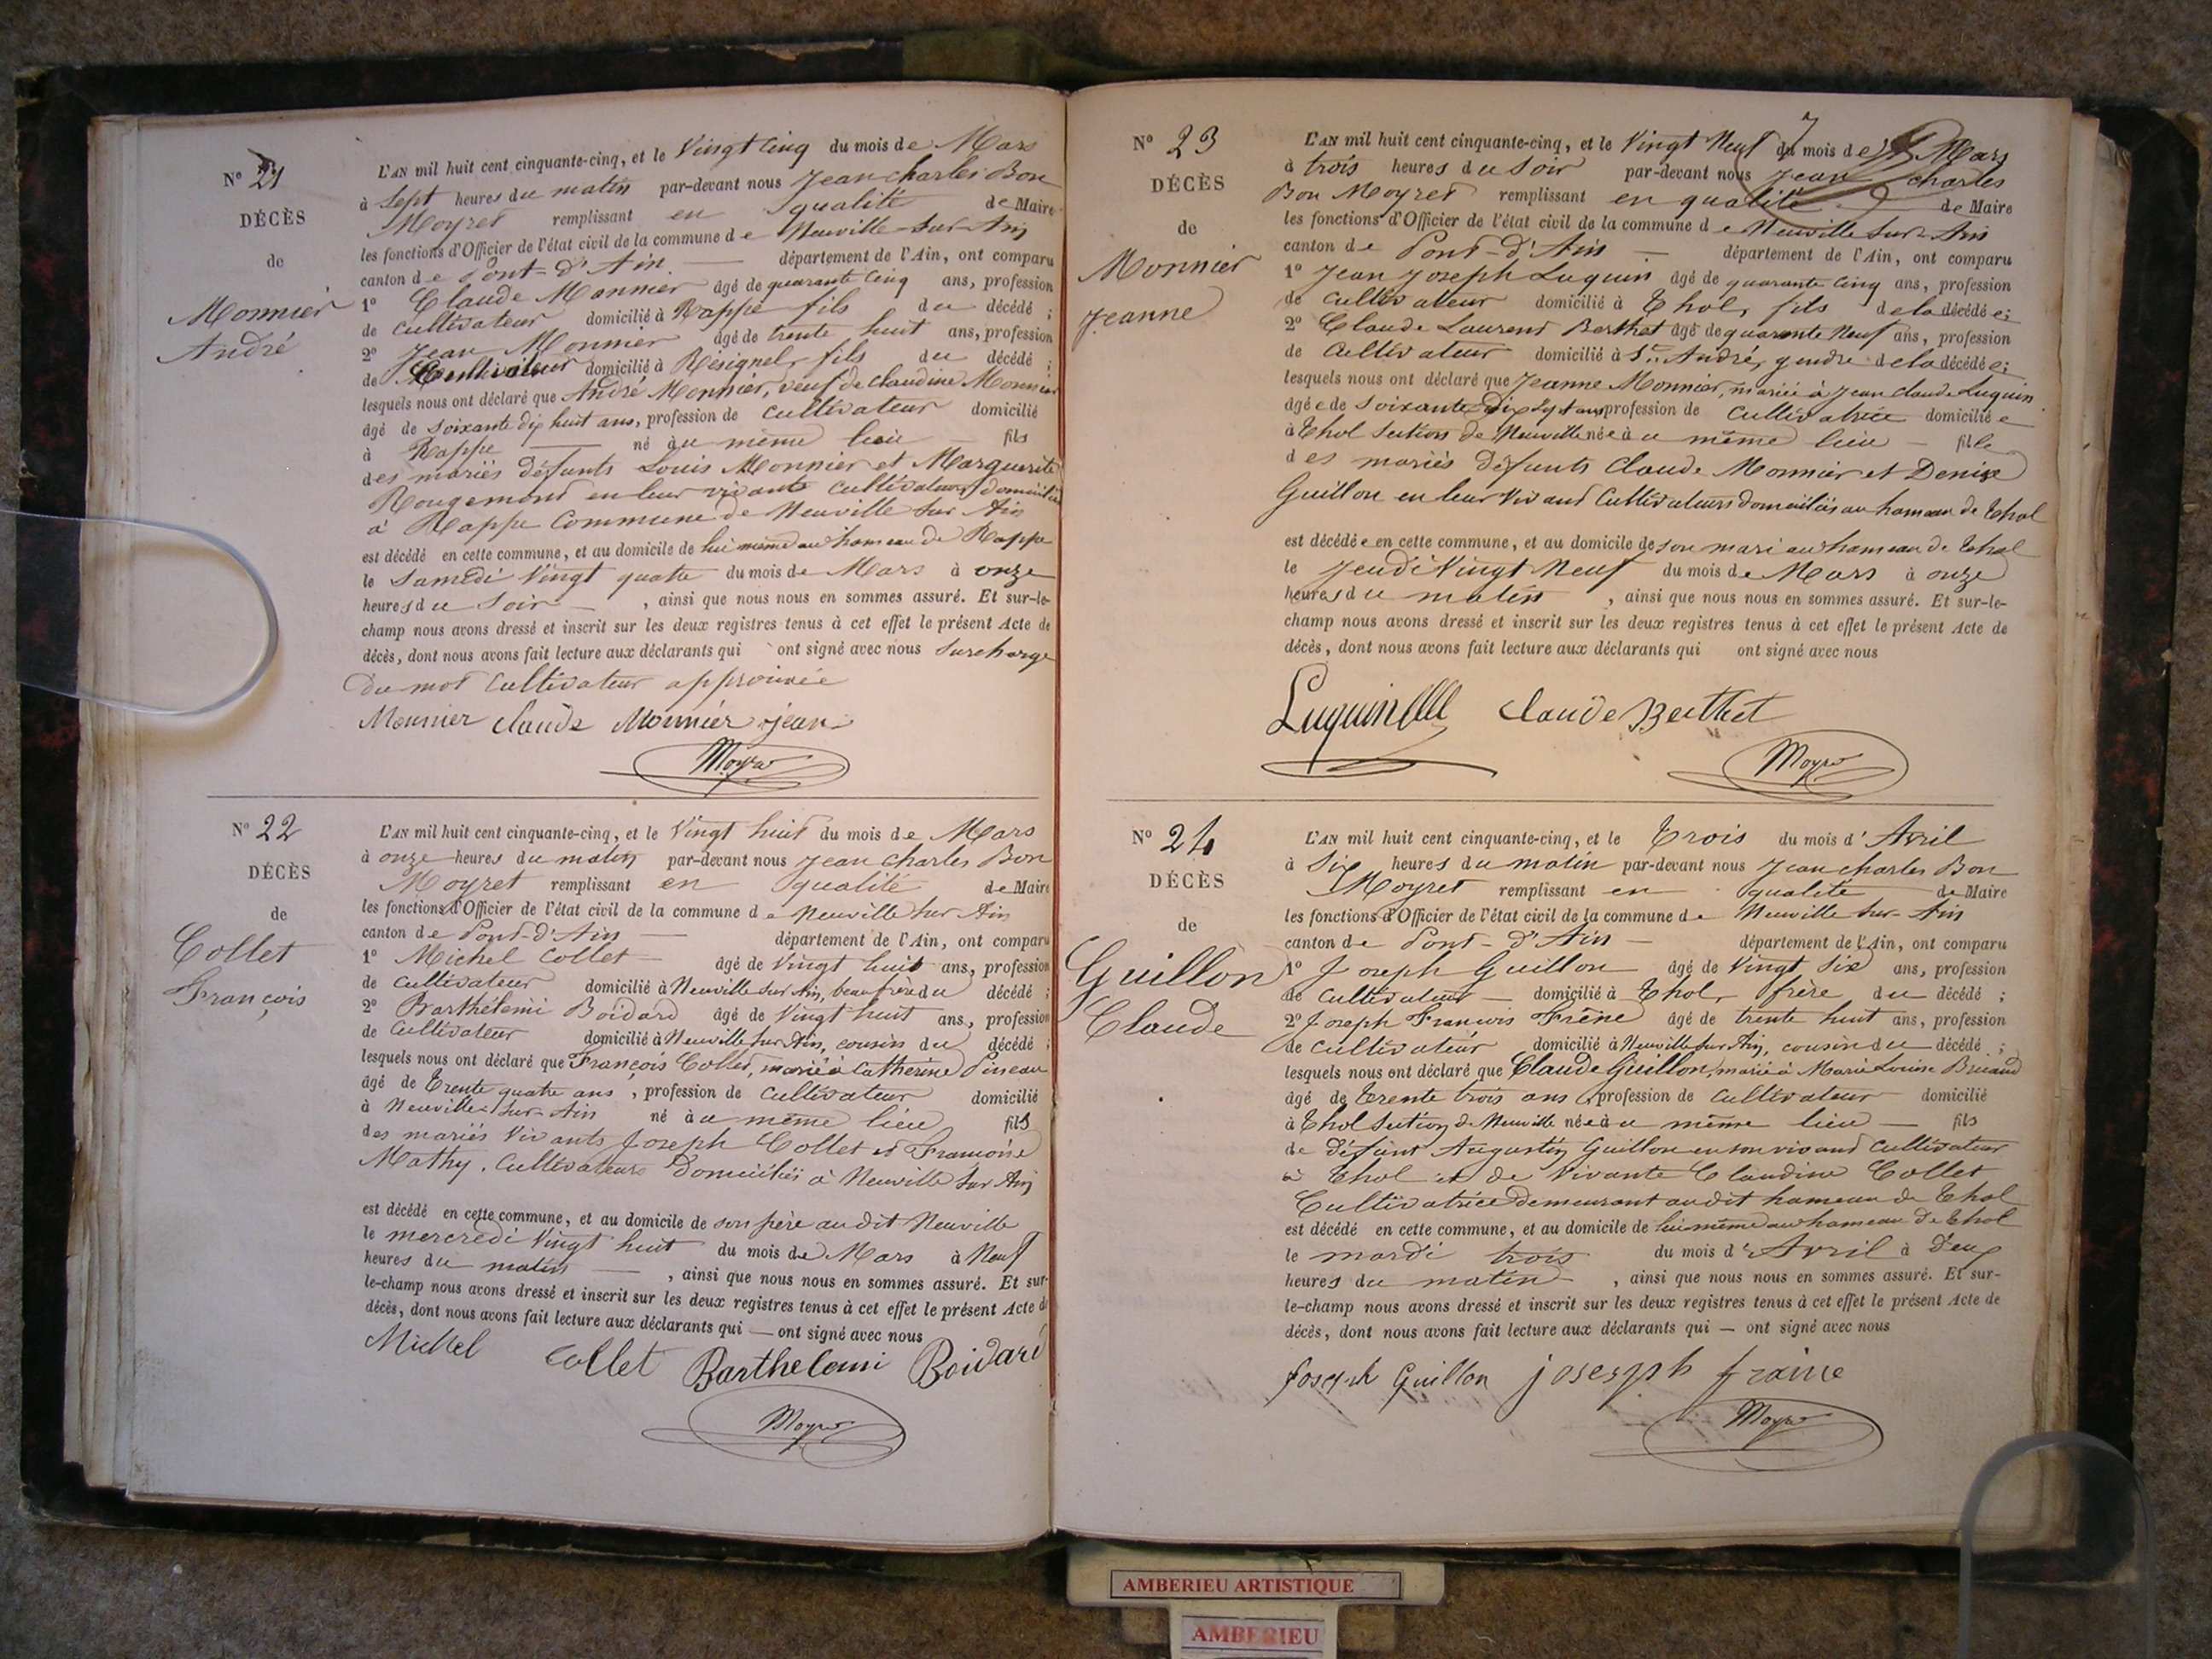 N° 21
DÉCÈS
de
Monnier
André
L'AN mil huit cent cinquante-cinq, et le Vingt Cinq du mois de Mars
à Sept heures du matin par-devant nous Jean charles Bon
Moyret remplissant en qualité de Maire
les fonctions d'Officier de l'état civil de la commune de Neuville-sur-Ain
canton de Pont-d'Ain département de l'Ain, ont comparu
1° Claude Monnier âgé de quarante Cinq ans, profession
de cultivateur domicilié à Rappe fils du décédé ;
2° Jean Monnier âgé de trente huit ans, profession
de Cultivateur domicilié à Résignel, fils du décédé ;
lesquels nous ont déclaré que André Monnier, veuf de claudine Monnier
âgé de soixante dix huit ans, profession de cultivateur domicilié
à Rappe né au même lieu fils
des mariés défunts Louis Monnier et Marguerite
Rougemond en leur vivants cultivateurs domiciliés
à Rappe Commune de Neuville sur Ain
est décédé en cette commune, et au domicile de lui même au hameau de Rappe
le Samedi Vingt quatre du mois de Mars à onze
heures du Soir , ainsi que nous nous en sommes assuré. Et sur-le-
champ nous avons dressé et inscrit sur les deux registres tenus à cet effet le présent Acte de
décès, dont nous avons fait lecture aux déclarants qui ont signé avec nous Surcharge
du mot Cultivateur approuvée
Monnier claude Monnier jean
Moyret
N° 22
DÉCÈS
de
Collet
François
L'AN mil huit cent cinquante-cinq, et le Vingt huit du mois de Mars
à onze heures du matin par-devant nous Jean charles Bon
Moyret remplissant en qualité de Maire
les fonctions d'Officier de l'état civil de la commune de Neuville sur Ain
canton de Pont-d'Ain département de l'Ain, ont comparu
1° Michel Collet âgé de Vingt huit ans, profession
de cultivateur domicilié à Neuville sur Ain, beau frère du décédé ;
2° Barthélemi Boidard âgé de Vingt huit ans, profession
de Cultivateur domicilié à Neuville sur Ain, cousin du décédé ;
lesquels nous ont déclaré que François Collet, marié à Catherine Pineau
âgé de Trente quatre ans , profession de cultivateur domicilié
à Neuville-sur-Ain né au même lieu fils
des mariés Vivants Joseph Collet et Françoise
Mathy. Cultivateurs Domiciliés à Neuville sur Ain
est décédé en cette commune, et au domicile de son père au dit Neuville
le mercredi Vingt huit du mois de Mars à Neuf
heures du matin , ainsi que nous nous en sommes assuré. Et sur-
le-champ nous avons dressé et inscrit sur les deux registres tenus à cet effet le présent Acte de
décès, dont nous avons fait lecture aux déclarants qui — ont signé avec nous
Michel Collet Barthelemi Boidard
Moyret
N° 23
DÉCÈS
de
Monnier
Jeanne
L'AN mil huit cent cinquante-cinq, et le Vingt Neuf du mois de Mars
à trois heures du Soir par-devant nous Jean charles
Bon Moyret remplissant en qualité de Maire
les fonctions d'Officier de l'état civil de la commune de Neuville sur Ain
canton de Pont-d'Ain département de l'Ain, ont comparu
1° Jean Joseph Luquin âgé de quarante Cinq ans, profession
de Cultivateur domicilié à Thol, fils de la décédée ;
2° Claude Laurent Berthet âgé de quarante Neuf ans, profession
de Cultivateur domicilié à St. André, gendre de la décédée ;
lesquels nous ont déclaré que Jeanne Monnier, mariée à Jean claude Luquin
âgée de Soixante Dix Sept ans profession de Cultivatrice domiciliée
à Thol Section de Neuville née au même lieu — fille
des mariés défunts Claude Monnier et Denise
Guillon en leur Vivant Cultivateurs domiciliés au hameau de Thol
est décédée en cette commune, et au domicile de son mari au hameau de Thol
le Jeudi Vingt Neuf du mois de Mars à onze
heures du matin , ainsi que nous nous en sommes assuré. Et sur-le-
champ nous avons dressé et inscrit sur les deux registres tenus à cet effet le présent Acte de
décès, dont nous avons fait lecture aux déclarants qui ont signé avec nous
Luquin Claude Berthet
Moyret
N° 24
DÉCÈS
de
Guillon
Claude
L'AN mil huit cent cinquante-cinq, et le Trois du mois d'Avril
à Six heures du matin par-devant nous Jean charles Bon
Moyret remplissant en qualité de Maire
les fonctions d'Officier de l'état civil de la commune de Neuville sur-Ain
canton de Pont-d'Ain — département de l'Ain, ont comparu
1° Joseph Guillon âgé de Vingt Six ans, profession
de Cultivateur — domicilié à Thol, frère du décédé ;
2° Joseph François Frêne âgé de trente huit ans, profession
de cultivateur domicilié à Neuville sur Ain, cousin du décédé ;
lesquels nous ont déclaré que Claude Guillon, marié à Marie Louise Bruand
âgé de Trente trois ans , profession de cultivateur domicilié
à Thol Section de Neuville né au même lieu — fils
de défunt Augustin Guillon en son vivant cultivateur
à Thol et de Vivante Claudine Collet
Cultivatrice demeurant au dit hameau de Thol
est décédé en cette commune, et au domicile de lui même au hameau de Thol
le mardi trois du mois d'Avril à Deux
heures du matin — , ainsi que nous nous en sommes assuré. Et sur-
le-champ nous avons dressé et inscrit sur les deux registres tenus à cet effet le présent Acte de
décès, dont nous avons fait lecture aux déclarants qui — ont signé avec nous
Joseph Guillon josesph fraine
Moyret
AMBERIEU ARTISTIQUE
AMBERIEU